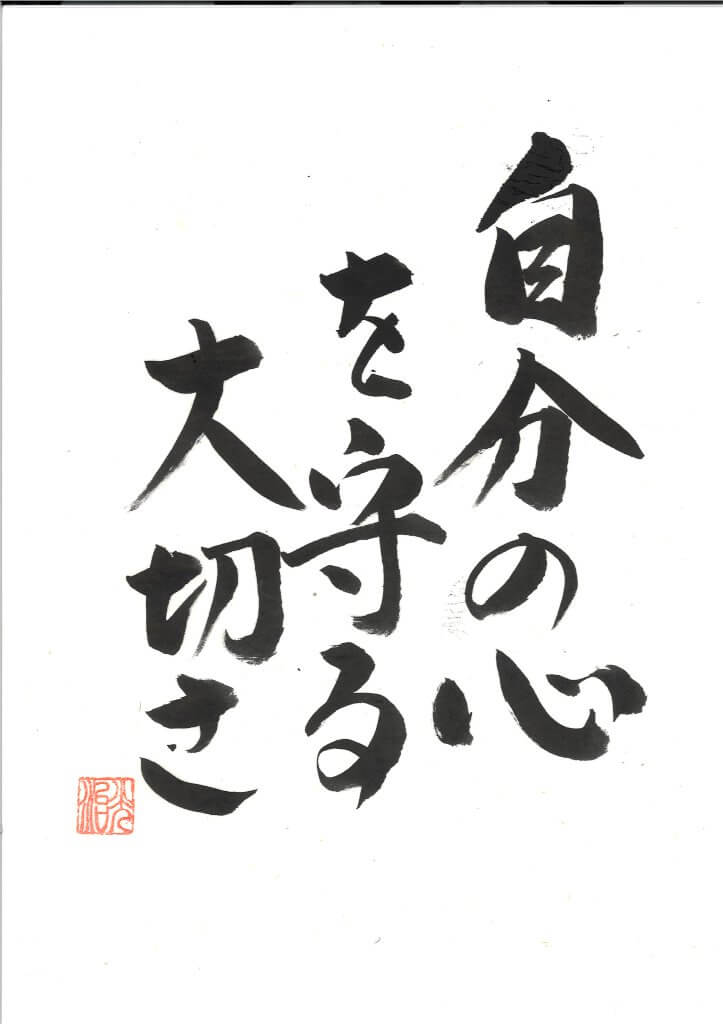 自分の心
を守る
大切さ